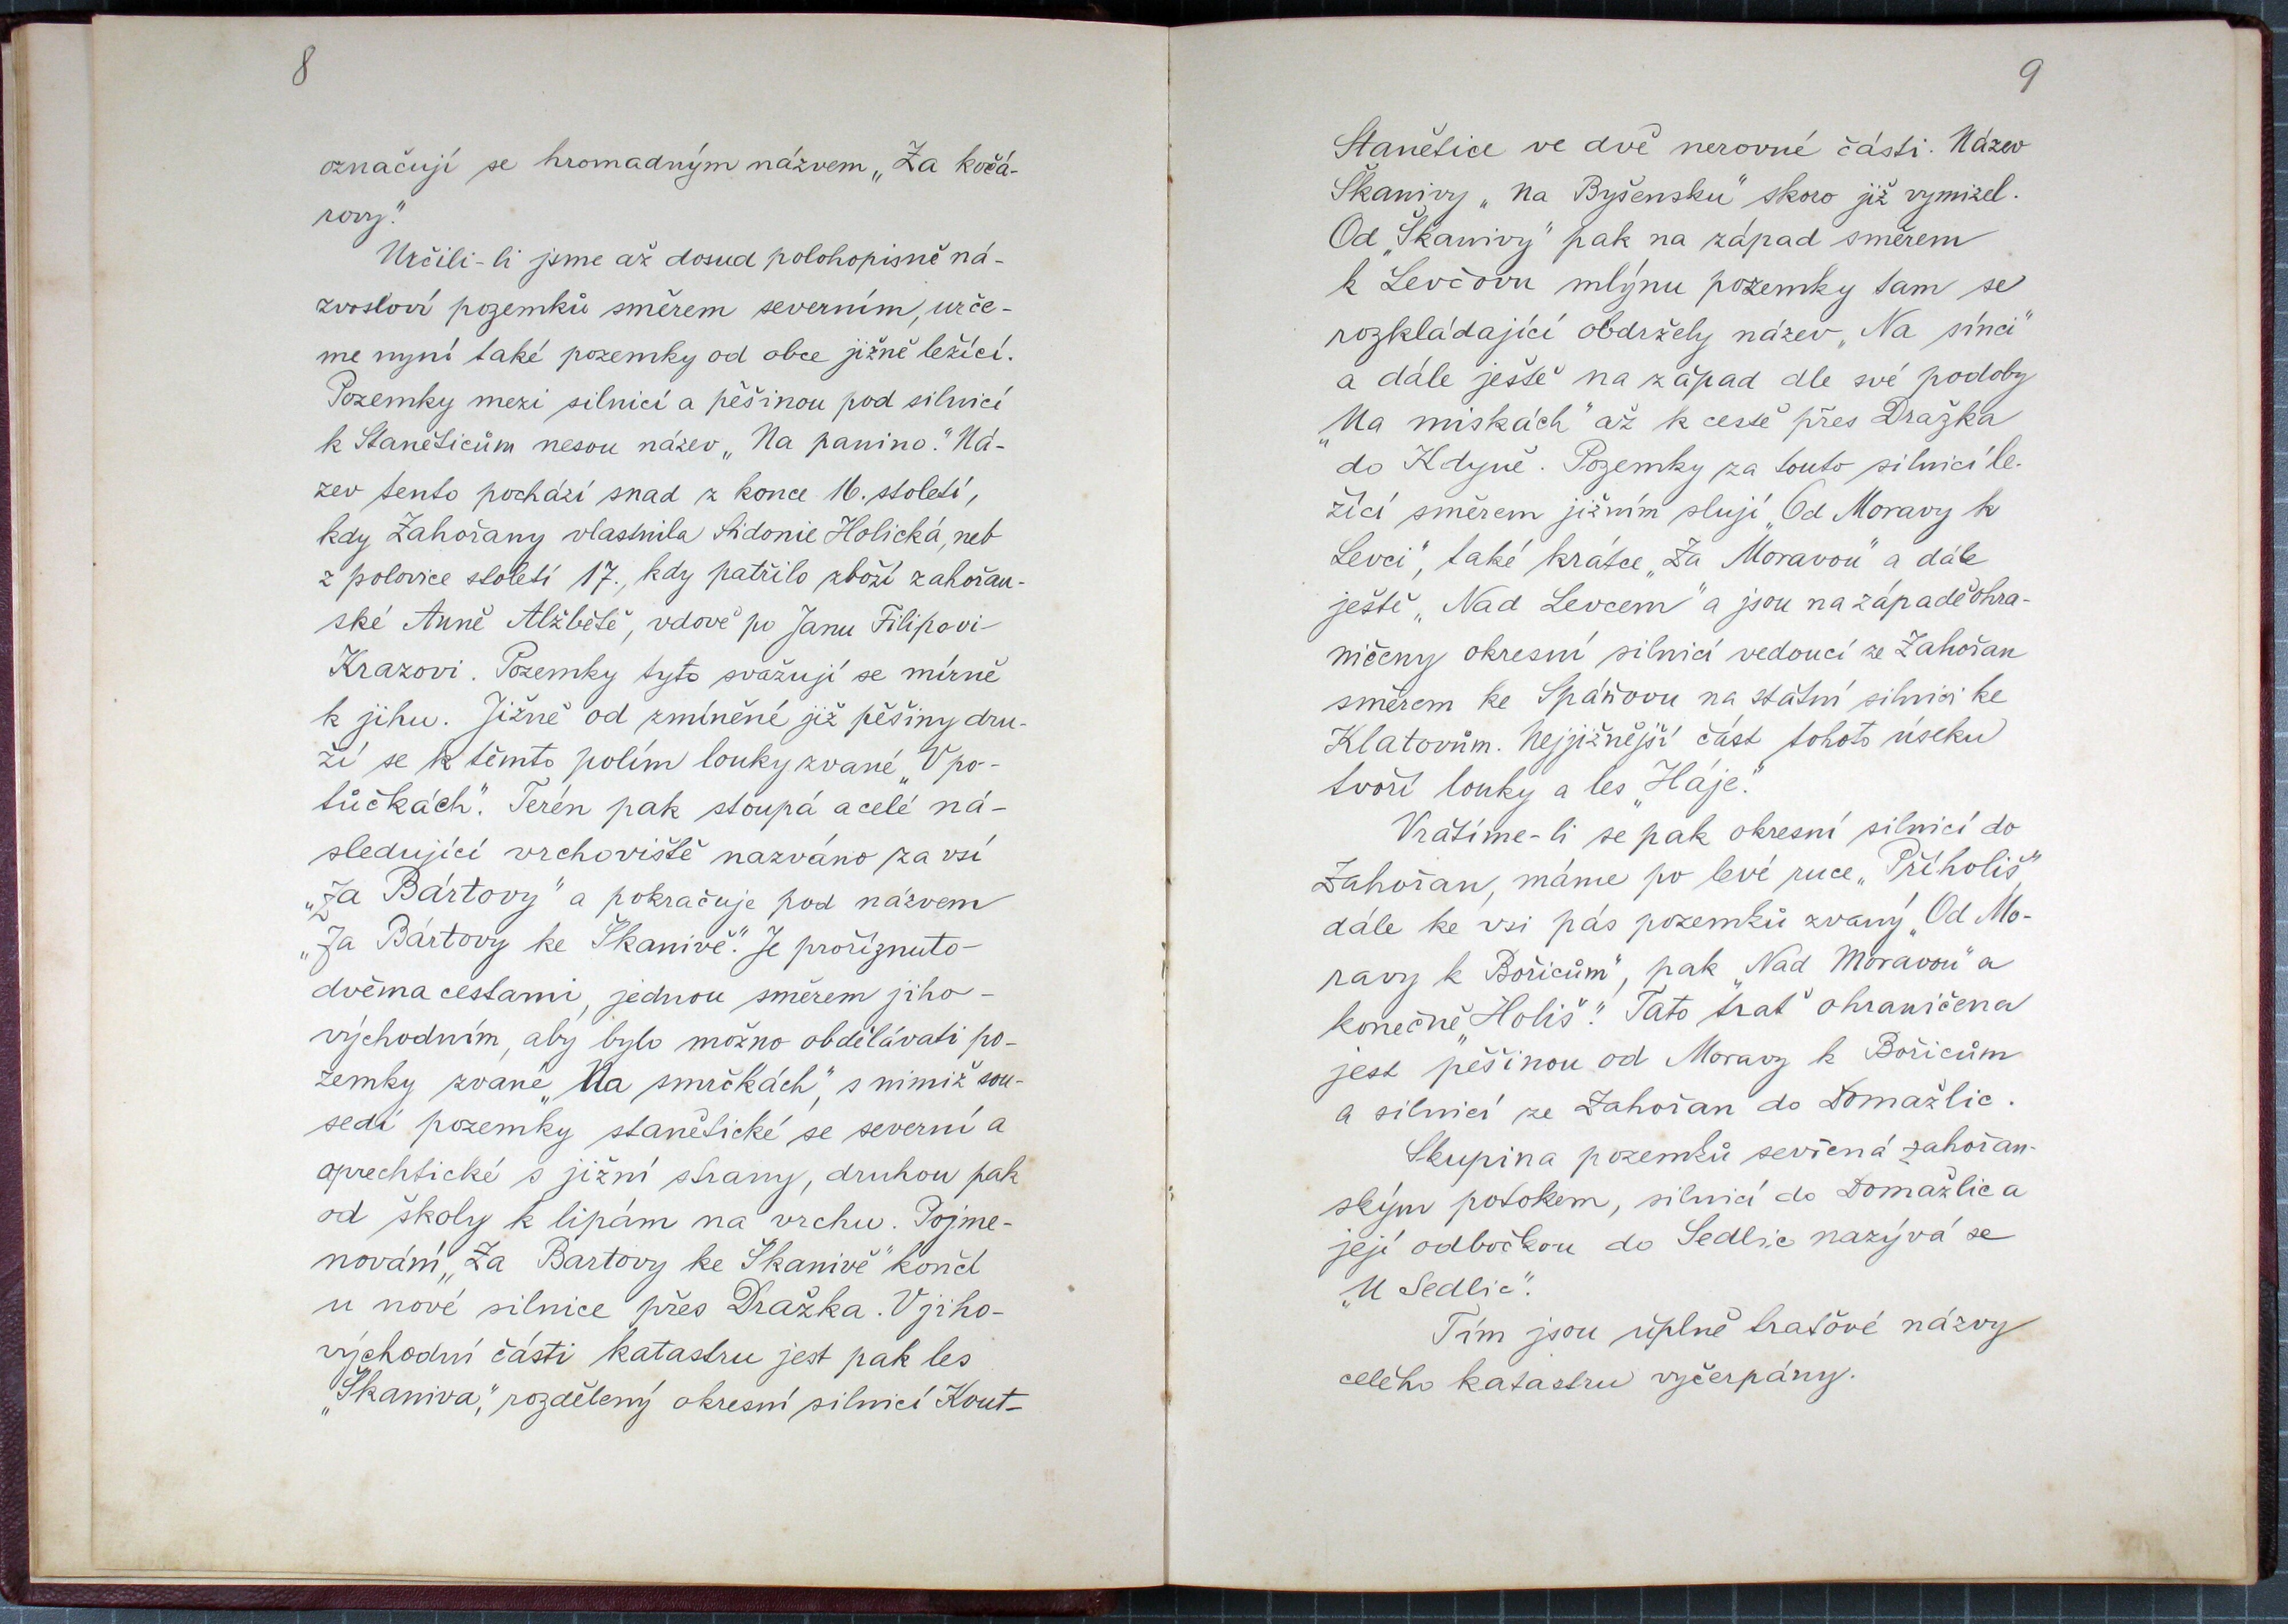 8
označují se hromadným názvem „Za kočá-
rovy“.
Určili-li jsme až dosud polohopisně ná-
zvosloví pozemků směrem severním, urče-
me nyní také pozemky od obce jižně ležící.
Pozemky mezi silnicí a pěšinou pod silnicí
k Staněticům nesou název „Na panino.“ Ná-
zev tento pochází snad z konce 16. století,
kdy Zahořany vlastnila Sidonie Holická, neb
z polovice století 17., kdy patřilo zboží zahořan-
ské Anně Alžbětě, vdově po Janu Filipovi
Krazovi. Pozemky tyto svažují se mírně
k jihu. Jižně od zmíněné již pěšiny dru-
ží se k těmto polím louky zvané „V po-
tůčkách“. Terén pak stoupá a celé ná-
sledující vrchoviště nazváno za vsí
„Za Bártovy“ a pokračuje pod názvem
„Za Bártovy ke Škanivě“. Je proříznuto
dvěma cestami, jednou směrem jiho-
východním, aby bylo možno obdělávati po-
zemky zvané „Na smrčkách“, s nimiž sou-
sedí pozemky stanětické se severní a
oprechtické s jižní strany, druhou pak
od školy k lipám na vrchu. Pojme-
nování „Za Bartovy ke Škanivě“ končí
u nové silnice přes Dražka. V jiho-
východní části katastru jest pak les
„Škaniva“, rozdělený okresní silnicí Kout-
9
Stanětice ve dvě nerovné části. Název
Škanivy „na Byšensku“ skoro již vymizel.
Od „Škanivy“ pak na západ směrem
k Levčovu mlýnu pozemky tam se
rozkládající obdržely název „Na sínci“
a dále ještě na západ dle své podoby
„Na miskách“ až k cestě přes Dražka
do Kdyně. Pozemky za touto silnicí le-
žící směrem jižním slují „Od Moravy k
Levci“, také krátce „Za Moravou“ a dále
ještě „Nad Levcem“ a jsou na západě ohra-
ničeny okresní silnicí vedoucí ze Zahořan
směrem ke Spáňovu na státní silnici ke
Klatovům. Nejjižnější část tohoto úseku
tvoří louky a les „Háje“.
Vrátíme-li se pak okresní silnicí do
Zahořan, máme po levé ruce „Příholiš“,
dále ke vsi pás pozemků zvaný „Od Mo-
ravy k Bořicům“, pak „Nad Moravou“ a
konečně „Holiš“. Tato trať ohraničena
jest pěšinou od Moravy k Bořicům
a silnicí ze Zahořan do Domažlic.
Skupina pozemků sevřená zahořan-
ským potokem, silnicí do Domažlic a
její odbočkou do Sedlic nazývá se
„U Sedlic“.
Tím jsou úplně traťové názvy
celého katastru vyčerpány.